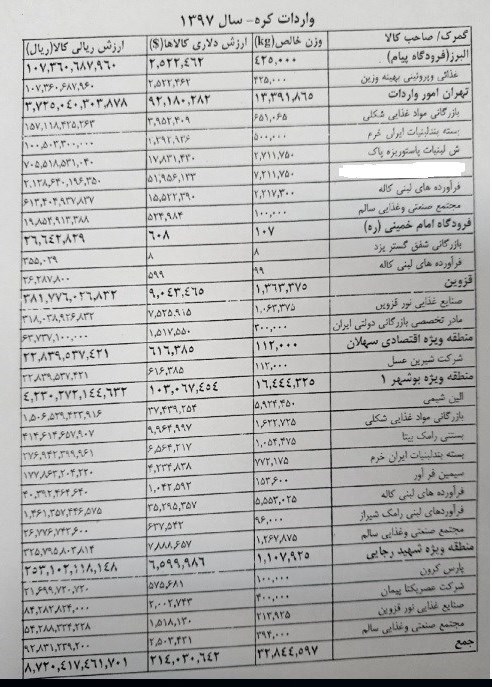 واردات کره- سال ۱۳۹۷
گمرک/ صاحب کالا وزن خالص(kg) ارزش دلاری کالاها($) ارزش ریالی کالا(ریال)
البرز(فرودگاه پیام) ۴۲۵,۰۰۰ ۲,۵۲۲,۴۶۲ ۱۰۷,۳۶۰,۶۸۷,۹۶۰
غذائی وپروتئینی بهینه وزین ۴۲۵,۰۰۰ ۲,۵۲۲,۴۶۲ ۱۰۷,۳۶۰,۶۸۷,۹۶۰
تهران امور واردات ۱۳,۳۹۱,۸۶۵ ۹۲,۱۸۰,۲۸۲ ۳,۷۲۵,۰۴۰,۳۰۳,۸۷۸
بازرگانی مواد غذایی شکلی ۶۵۱,۰۶۵ ۳,۹۵۲,۴۰۹ ۱۵۷,۱۱۸,۴۲۵,۲۶۳
بسته بندلبنیات ایران خرم ۵۰۰,۰۰۰ ۱,۲۹۲,۹۳۶ ۱۰۰,۵۰۲,۳۰۰,۰۰۰
ش لبنیات پاستوریزه پاک ۲,۷۱۱,۷۵۰ ۱۷,۸۳۱,۴۳۰ ۷۰۵,۵۱۸,۵۳۱,۰۴۰
۷,۲۱۱,۷۵۰ ۵۱,۹۵۶,۱۳۳ ۲,۱۲۸,۶۴۰,۱۹۶,۳۵۰
فرآورده های لبنی کاله ۲,۲۱۷,۳۰۰ ۱۵,۵۲۲,۳۹۰ ۶۱۳,۴۰۴,۹۳۷,۸۳۷
مجتمع صنعتی وغذایی سالم ۱۰۰,۰۰۰ ۵۲۴,۹۸۴ ۱۹,۸۵۴,۹۱۳,۳۸۸
فرودگاه امام خمینی (ره) ۱۰۷ ۶۰۸ ۲۶,۶۴۲,۸۲۹
بازرگانی شفق گستر یزد ۸ ۸ ۳۵۵,۰۲۹
فرآورده های لبنی کاله ۹۹ ۵۹۹ ۲۶,۲۸۷,۸۰۰
قزوین ۱,۳۶۳,۳۷۵ ۹,۰۴۳,۴۶۵ ۳۸۱,۷۷۶,۰۲۶,۸۳۲
صنایع غذایی نور قزوین ۱,۰۶۳,۳۷۵ ۷,۵۲۵,۹۱۵ ۳۱۸,۰۳۸,۹۲۶,۸۳۲
مادر تخصصی بازرگانی دولتی ایران ۳۰۰,۰۰۰ ۱,۵۱۷,۵۵۰ ۶۳,۷۳۷,۱۰۰,۰۰۰
منطقه ویژه اقتصادی سهلان ۱۱۲,۰۰۰ ۶۱۶,۳۸۵ ۲۲,۸۳۹,۵۳۷,۴۲۱
شرکت شیرین عسل ۱۱۲,۰۰۰ ۶۱۶,۳۸۵ ۲۲,۸۳۹,۵۳۷,۴۲۱
منطقه ویژه بوشهر ۱ ۱۶,۴۴۴,۲۲۵ ۱۰۳,۰۶۷,۴۵۴ ۴,۲۳۰,۲۷۲,۱۴۴,۶۳۳
الین شیمی ۵,۹۲۴,۴۵۰ ۳۷,۴۳۹,۲۵۴ ۱,۵۰۶,۵۲۹,۴۲۳,۹۱۶
بازرگانی مواد غذایی شکلی ۱,۶۲۲,۷۲۵ ۹,۹۶۴,۹۹۷ ۴۱۴,۶۱۴,۶۵۷,۹۰۷
بستنی رامک بیتا ۱,۰۵۴,۴۷۵ ۶,۵۶۴,۲۱۷ ۲۷۶,۹۴۲,۳۹۹,۹۶۱
بسته بندلبنیات ایران خرم ۷۷۲,۱۷۵ ۴,۲۳۴,۸۳۸ ۱۷۷,۸۶۲,۲۰۴,۲۲۰
سیمین فر آور ۱۵۳,۶۰۰ ۱,۰۴۲,۵۹۲ ۴۰,۳۹۲,۴۶۴,۶۴۰
فرآورده های لبنی کاله ۵,۵۵۳,۰۲۵ ۳۵,۲۹۵,۳۵۷ ۱,۴۶۱,۳۵۷,۴۴۶,۵۷۵
فرآوردهای لبنی رامک شیراز ۹۶,۰۰۰ ۶۳۷,۵۴۲ ۲۶,۷۷۶,۷۴۳,۶۰۰
مجتمع صنعتی وغذایی سالم ۱,۲۶۷,۸۷۵ ۷,۸۸۸,۶۵۷ ۳۲۵,۷۹۵,۸۰۲,۸۱۴
منطقه ویژه شهید رجایی ۱,۱۰۷,۹۲۵ ۶,۵۹۹,۹۸۶ ۲۵۳,۱۰۲,۱۱۸,۱۴۸
پارس کرون ۱۰۰,۰۰۰ ۵۷۵,۶۸۱ ۲۱,۶۹۹,۷۲۰,۷۲۰
شرکت عصریکتا پیمان ۴۰۰,۰۰۰ ۲,۰۰۲,۷۴۳ ۸۴,۲۸۲,۸۲۴,۰۰۰
صنایع غذایی نور قزوین ۲۱۳,۹۲۵ ۱,۵۱۸,۱۳۰ ۵۴,۲۸۸,۳۳۴,۲۲۸
مجتمع صنعتی وغذایی سالم ۳۹۴,۰۰۰ ۲,۵۰۳,۴۳۱ ۹۲,۸۳۱,۲۳۹,۲۰۰
جمع ۳۲,۸۴۴,۵۹۷ ۲۱۴,۰۳۰,۶۴۲ ۸,۷۲۰,۴۱۷,۴۶۱,۷۰۱